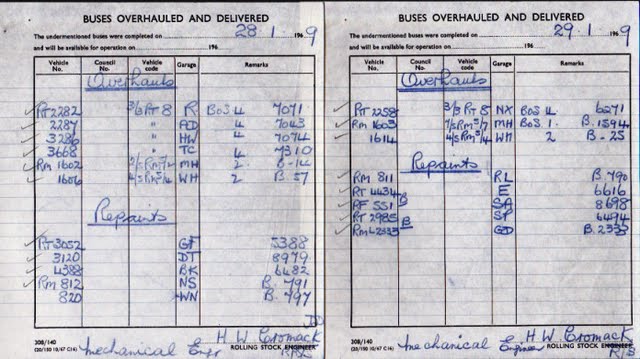 BUSES OVERHAULED AND DELIVERED
The undermentioned buses were completed on 28 . 1 . 196 9
and will be available for operation on 196
Vehicle No. Council No. Vehicle code Garage Remarks
Overhauls
RT 2282 3/3 RT 8 R BOS 4 7071
2287 " AD 4 7043
3286 " HW 4 7074
3668 " TC 4 7310
RM 1602 MH 2. B-14
1606 WH 2 B-57
Repaints
RT 3052 GF 5388
3120 DT 8979
4388 BK 6482
RM 812 NS B. 791
820 WN B. 797
308/140
(20/150 10/67 C16)
Mechanical Engr H W Cromack
ROLLING STOCK ENGINEER
BUSES OVERHAULED AND DELIVERED
The undermentioned buses were completed on 29 . 1 196 9
and will be available for operation on 196
Vehicle No. Council No. Vehicle code Garage Remarks
Overhauls
RT 2258 3/3 RT 8 NX BOS 4 6271
RM 1603 MH BOS 1. B.1594
1614 WH 2 B-25
Repaints
RM 811 RL B.790
RT 4434 E 6616
RF 551 B SA 8698
RT 2985 SP 6494
RM 2333 B GD B.2333
308/140
(20/150 10/67 C16)
Mechanical Engineer H W Cromack
ROLLING STOCK ENGINEER